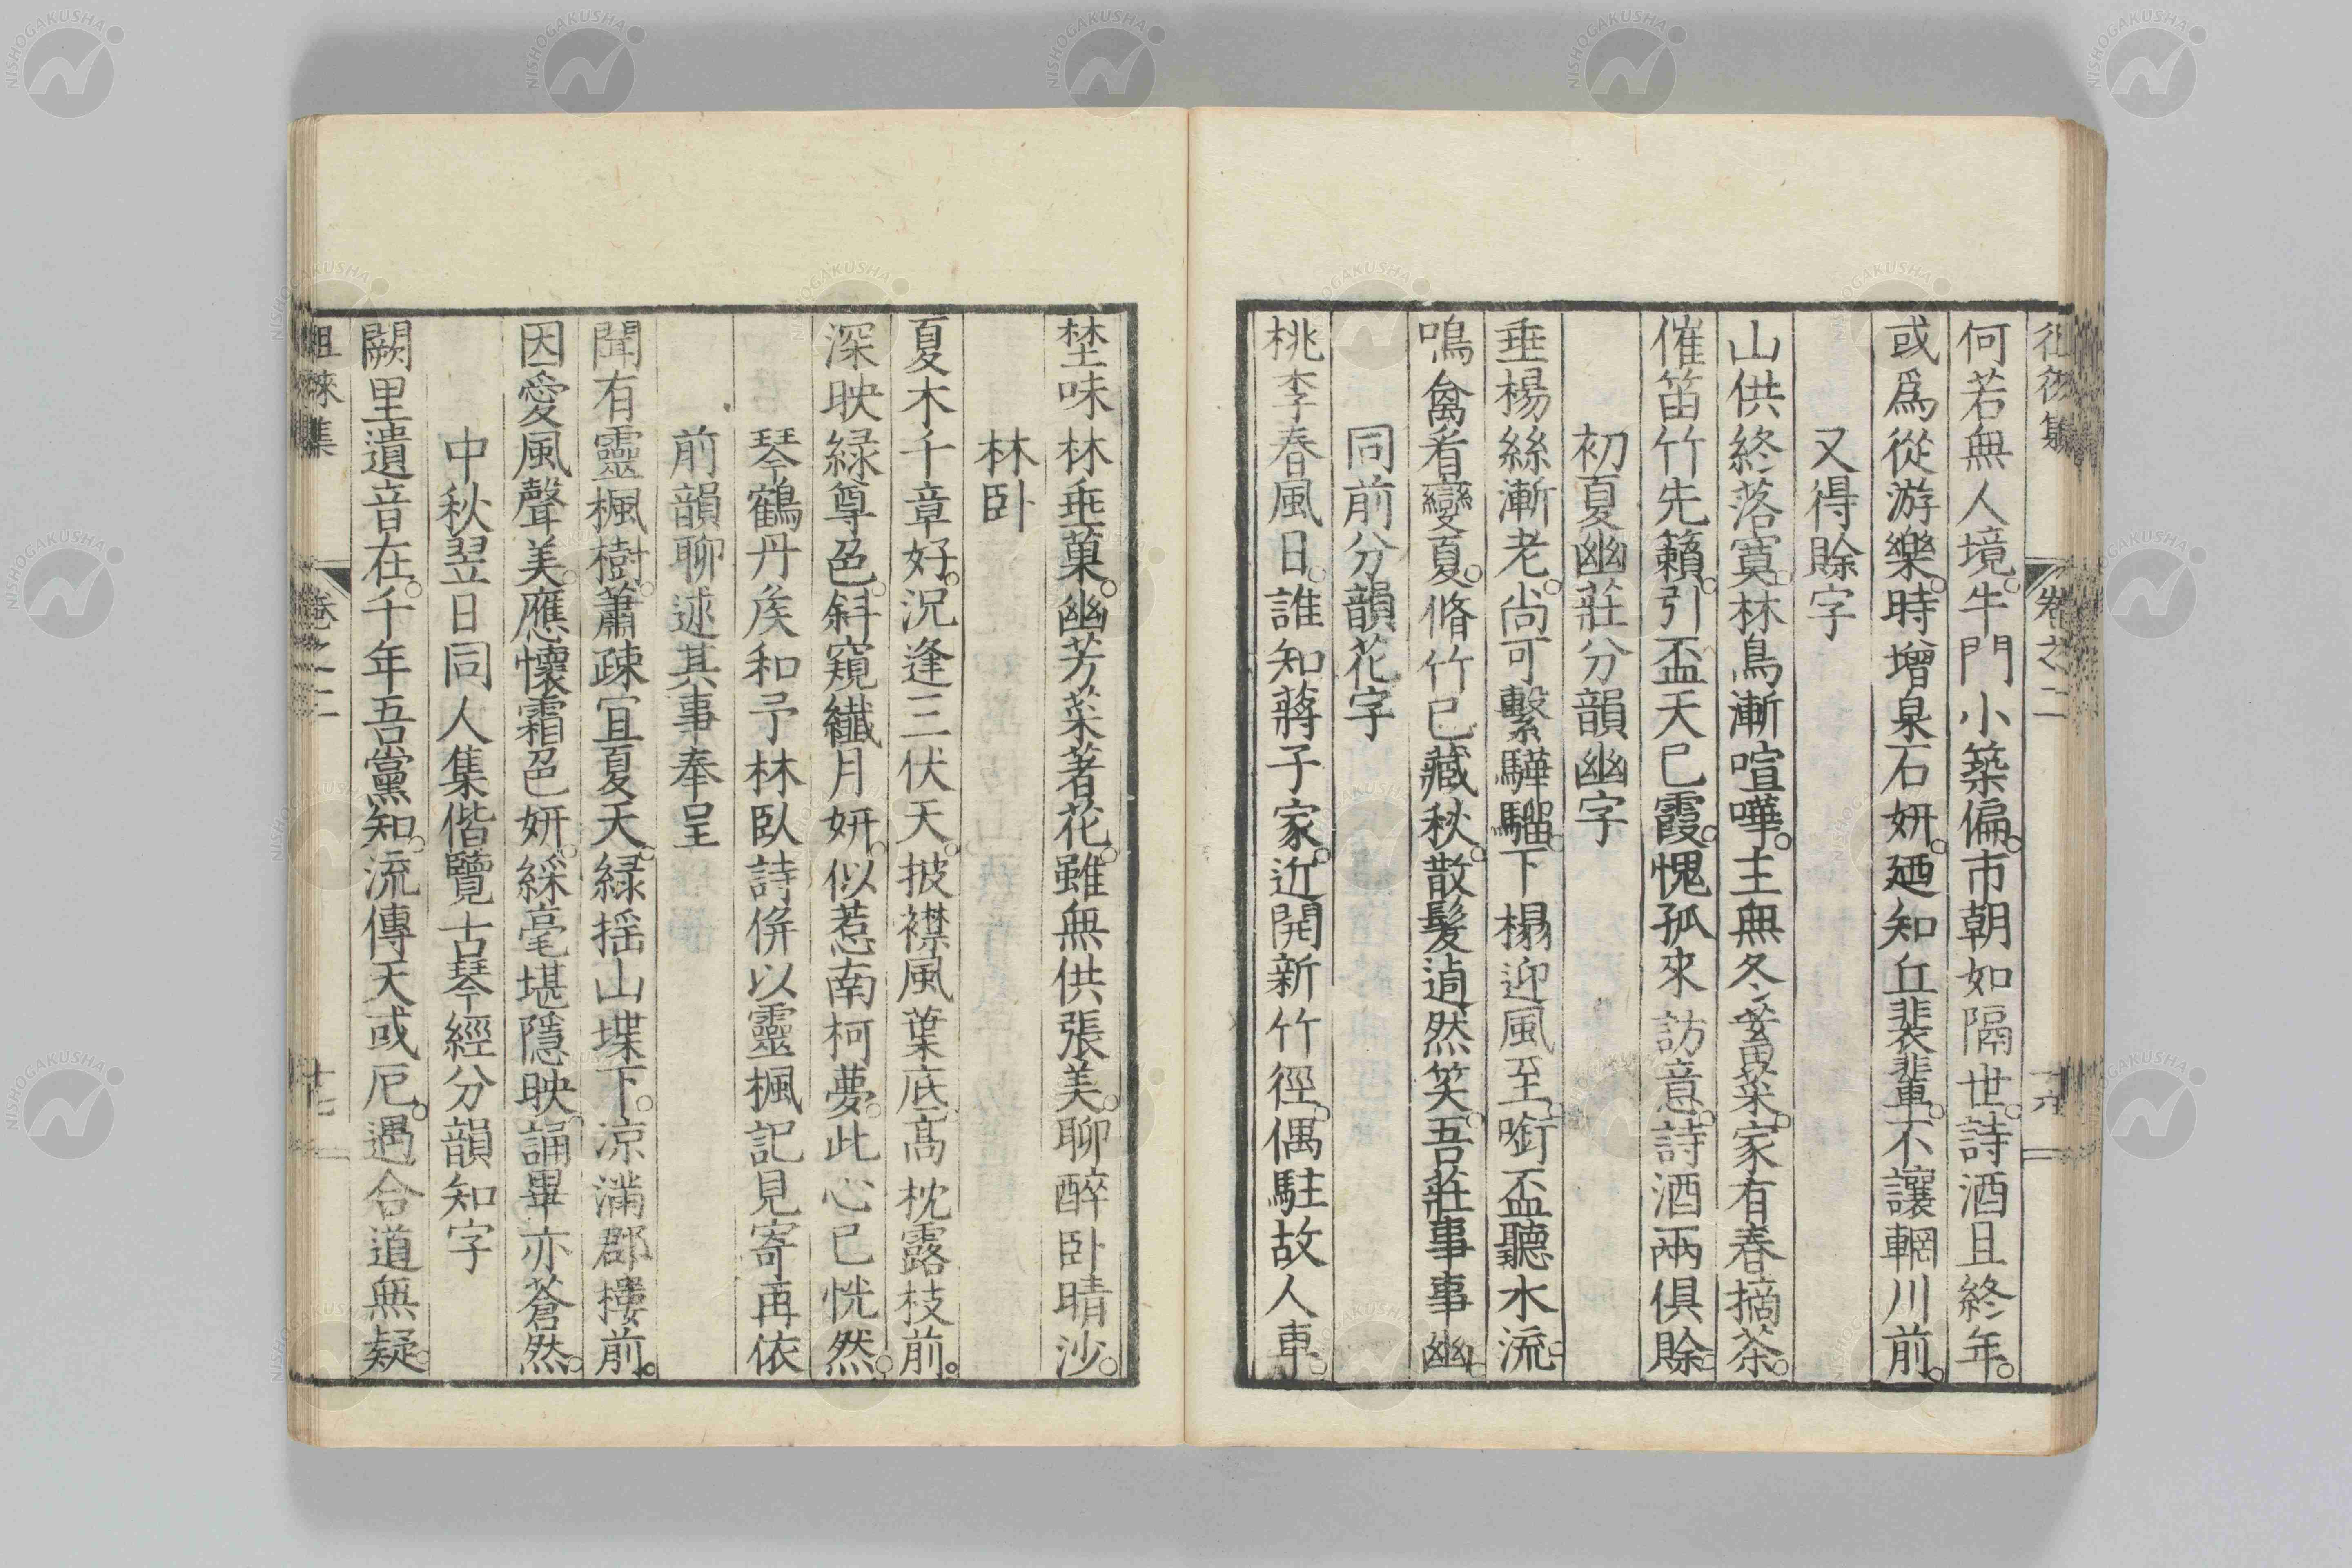 何若無人境。牛門小築偏。市朝如隔世。詩酒且終年。
或爲從游樂。時增泉石妍。廼知丘裴輩。不讓輞川前。
又得賒字
山供終落寞。林鳥漸喧嘩。主無冬蓄菜。家有春摘茶。
催笛竹先籟。引盃天已霞。愧孤來訪意。詩酒兩俱賒。
初夏幽莊分韻幽字
垂楊絲漸老。尚可繫驊騮。下榻迎風至。銜盃聽水流。
鳴禽看變夏。脩竹已藏秋。散髮逌然笑。吾莊事事幽。
同前分韻花字
桃李春風日。誰知蔣子家。近開新竹徑。偶駐故人車。
埜味林垂菓。幽芳菜著花。雖無供張美。聊醉卧晴沙。
林卧
夏木千章好。況逢三伏天。披襟風葉底。高枕露枝前。
深映綠尊色。斜窺纖月妍。似惹南柯夢。此心已恍然。
琴鶴丹矦和予林臥詩倂以靈楓記見寄再依
前韻聊述其事奉呈
聞有靈楓樹。蕭疎宜夏天。緑揺山堞下。涼滿郡樓前。
因愛風聲美。應懷霜色妍。綵毫堪隱映。誦畢亦蒼然。
中秋翌日同人集偕覽古琴經分韻知字
闕里遺音在。千年吾黨知。流傳天或厄。遇合道無疑。
徂徠集
卷之二
十七